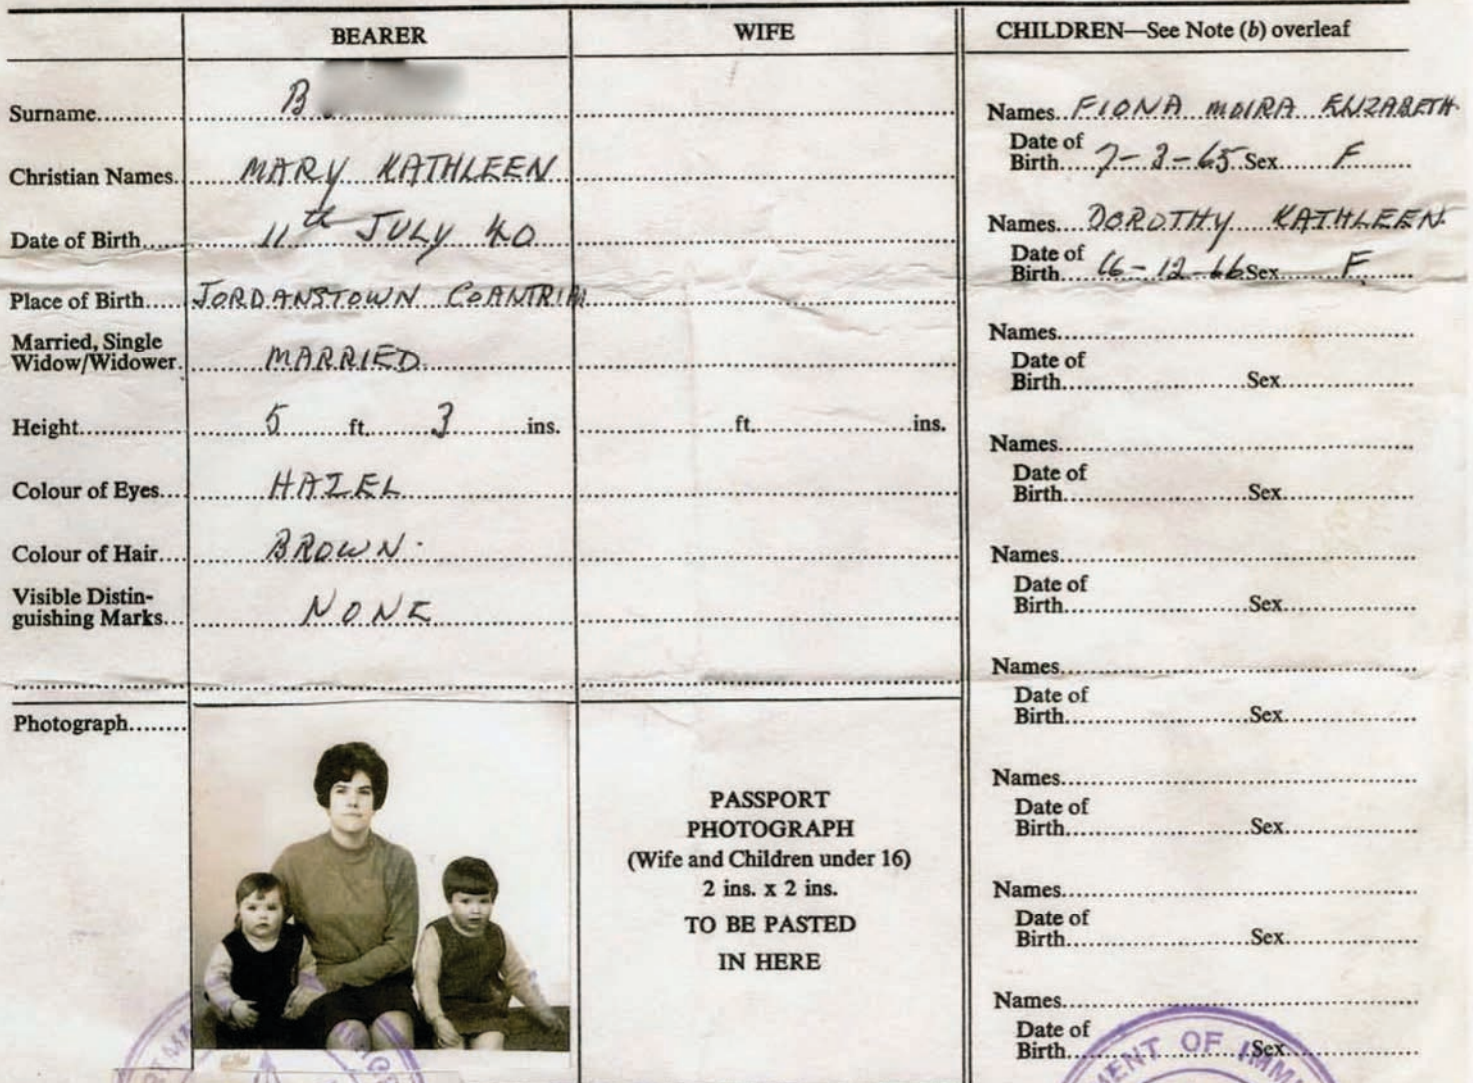 BEARER WIFE CHILDREN—See Note (b) overleaf
Surname B
Christian Names MARY KATHLEEN
Date of Birth 11th JULY 40
Place of Birth JORDANSTOWN CO ANTRIM
Married, Single
Widow/Widower. MARRIED
Height 5 ft. 3 ins. ft. ins.
Colour of Eyes HAZEL
Colour of Hair BROWN.
Visible Distin-
guishing Marks NONE
Photograph
PASSPORT
PHOTOGRAPH
(Wife and Children under 16)
2 ins. x 2 ins.
TO BE PASTED
IN HERE
Names FIONA MOIRA ELIZABETH
Date of
Birth Sex F
Names DOROTHY KATHLEEN
Date of
Birth 16-12-66 Sex F
Names
Date of
Birth Sex
Names
Date of
Birth Sex
Names
Date of
Birth Sex
Names
Date of
Birth Sex
Names
Date of
Birth Sex
Names
Date of
Birth Sex
Names
Date of
Birth Sex
MENT OF IMM